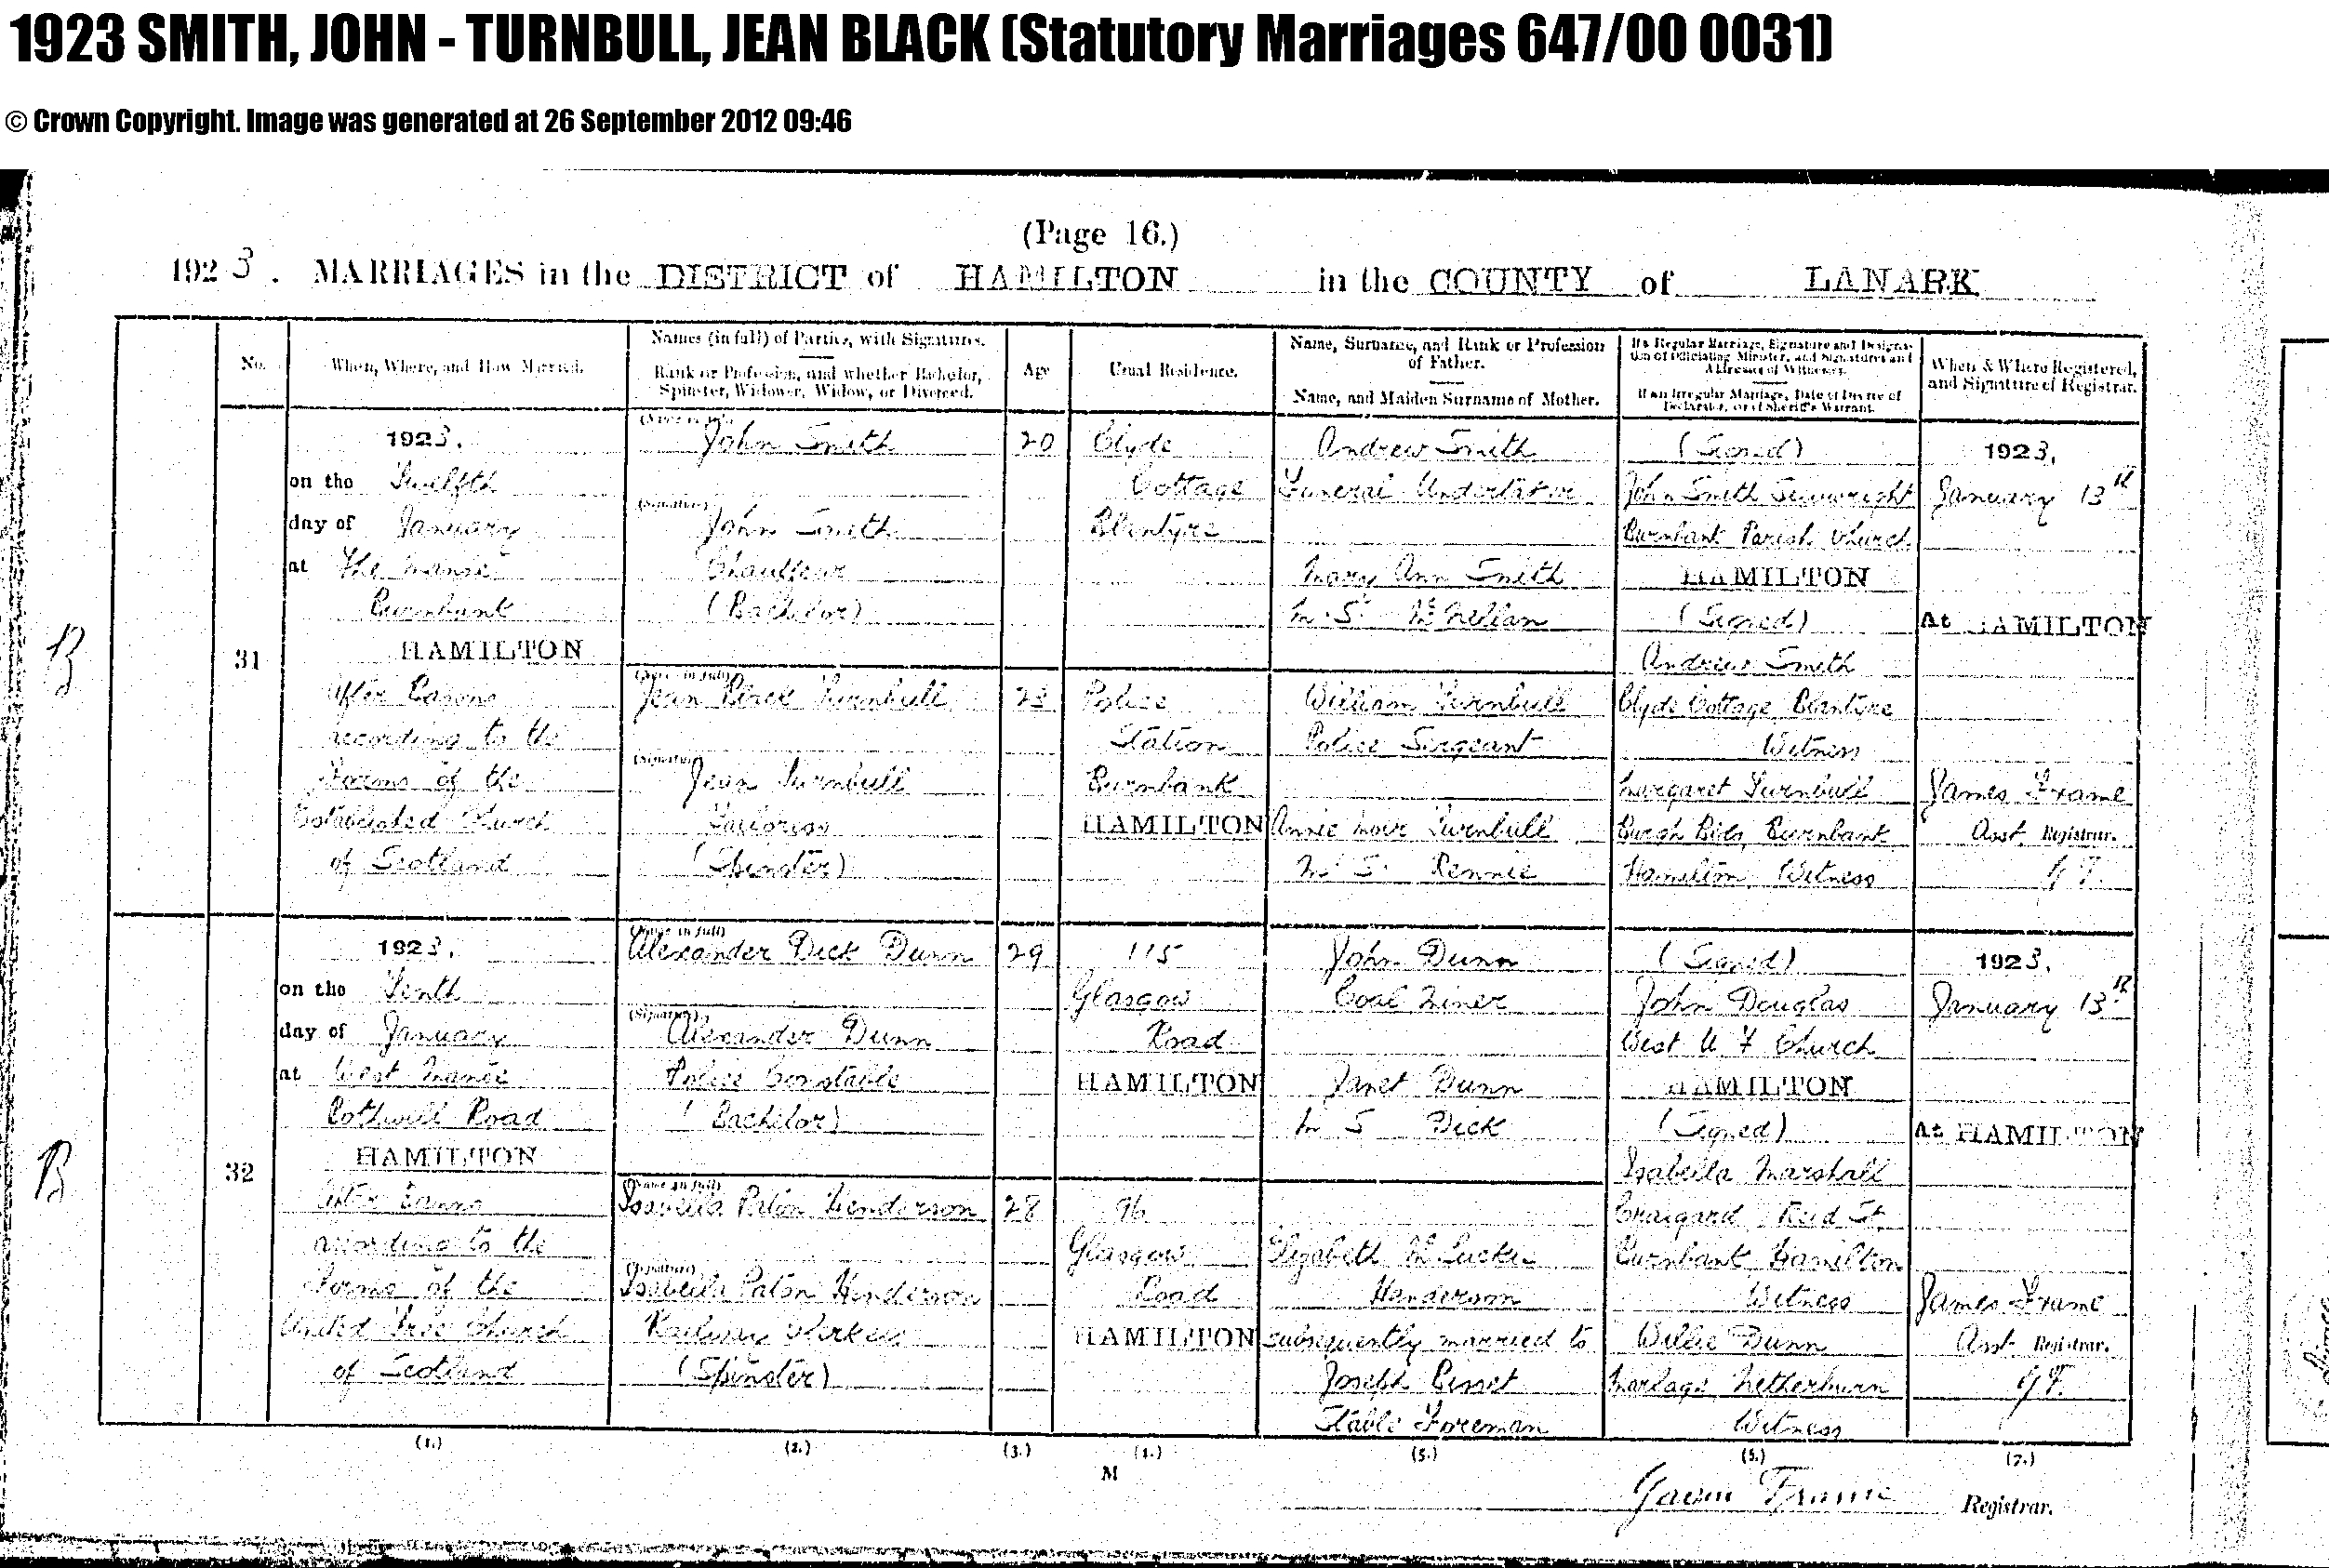 1923 SMITH, JOHN - TURNBULL, JEAN BLACK (Statutory Marriages 647/00 0031)
© Crown Copyright. Image was generated at 26 September 2012 09:46
(Page 16.)
1923. MARRIAGES in the DISTRICT of HAMILTON in the COUNTY of LANARK
No.
When, Where, and How Married.
Names (in full) of Parties, with Signatures.
Rank or Profession, and whether Bachelor,
Spinster, Widower, Widow, or Divorced.
Age
Usual Residence.
Name, Surname, and Rank or Profession
of Father.
Name, and Maiden Surname of Mother.
If a Regular Marriage, Signature and Designa-
tion of Officiating Minister, and Signatures and
Addresses of Witnesses.
If an Irregular Marriage, Date of Decree of
Declarator, or of Sheriff's Warrant.
When & Where Registered,
and Signature of Registrar.
31
1923.
on the Twelfth
day of January
at The Manse
Burnbank
HAMILTON
After Banns
according to the
Forms of the
Established Church
of Scotland
John Smith
(Signature)
John Smith
Chauffeur
(Bachelor)
(Name in full)
Jean Black Turnbull
(Signature)
Jean Turnbull
Tailoress
(Spinster)
20
Clyde
Cottage
Blantyre
Police
Station
Burnbank
HAMILTON
Andrew Smith
Funeral Undertaker
Mary Ann Smith
M.S. McLellan
William Turnbull
Police Sergeant
Annie Moir Turnbull
M.S. Rennie
(Signed)
John Smith Seawright
Burnbank Parish Church
HAMILTON
(Signed)
Andrew Smith
Clyde Cottage Blantyre
Witness
Margaret Turnbull
Burgh Bldgs, Burnbank
Hamilton, Witness
1923.
January 13th
At HAMILTON
James Frame
Asst. Registrar.
G F.
B
32
1923.
on the Tenth
day of January
at West Manse
Bothwell Road
HAMILTON
After Banns
according to the
Forms of the
United Free Church
of Scotland
(Name in full)
Alexander Dick Dunn
(Signature)
Alexander Dunn
Police Constable
(Bachelor)
(Name in full)
Isabella Paton Henderson
(Signature)
Isabella Paton Henderson
Railway Clerkess
(Spinster)
29
28
115
Glasgow
Road
HAMILTON
96
Glasgow
Road
HAMILTON
John Dunn
Coal Miner
Janet Dunn
M S Dick
Elizabeth McLuckie
Henderson
subsequently married to
Joseph Bisset
Stable Foreman
(Signed)
John Douglas
West U F Church
HAMILTON
(Signed)
Isabella Marshall
Craigard, Reid St.
Burnbank Hamilton
Witness
Willie Dunn
Netherburn
Witness
1923.
January 13th
At HAMILTON
James Frame
Asst. Registrar.
G F.
B
(1.) (2.) (3.) (4.) (5.) (7.)
M
Gavin Frame Registrar.